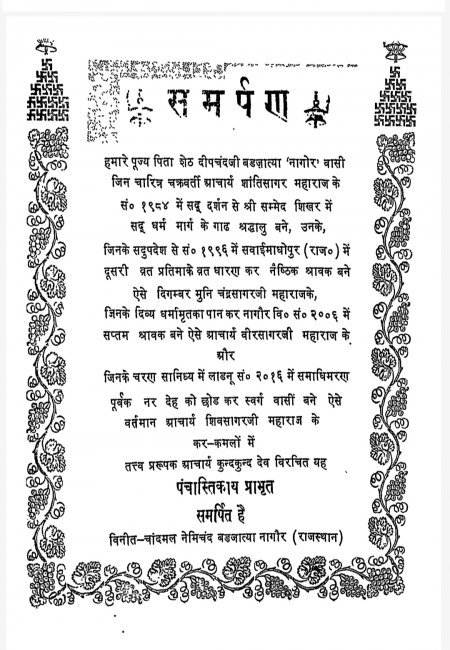 समर्पण
हमारे पूज्य पिता शेठ दीपचंदजी बडज़ात्या 'नागोर' वासी
जिन चारित्र चक्रवर्ती आचार्य शांतिसागर महाराज के
सं० १९८४ में सद् दर्शन से श्री सम्मेद शिखर में
सद् धर्म मार्ग के गाढ श्रद्धालु बने, उनके,
जिनके सदुपदेश से सं० १९९६ में सवाईमाधोपुर (राज०) में
दूसरी व्रत प्रतिमाके व्रत धारण कर नैष्ठिक श्रावक बने
ऐसे दिगम्बर मुनि चंद्रसागरजी महाराजके,
जिनके दिव्य धर्मामृतका पान कर नागौर वि० सं० २००६ में
सप्तम श्रावक बने ऐसे आचार्य वीरसागरजी महाराज के
और
जिनके चरण सानिध्य में लाडनू सं० २०१६ में समाधिमरण
पूर्वक नर देह को छोड कर स्वर्ग वासीं बने ऐसे
वर्तमान आचार्य शिवसागरजी महाराज के
कर-कमलों में
तत्त्व प्ररूपक आचार्य कुन्दकुन्द देव विरचित यह
पंचास्तिकाय प्राभृत
समर्पित है
विनीत-चांदमल नेमिचंद बडजात्या नागौर (राजस्थान)